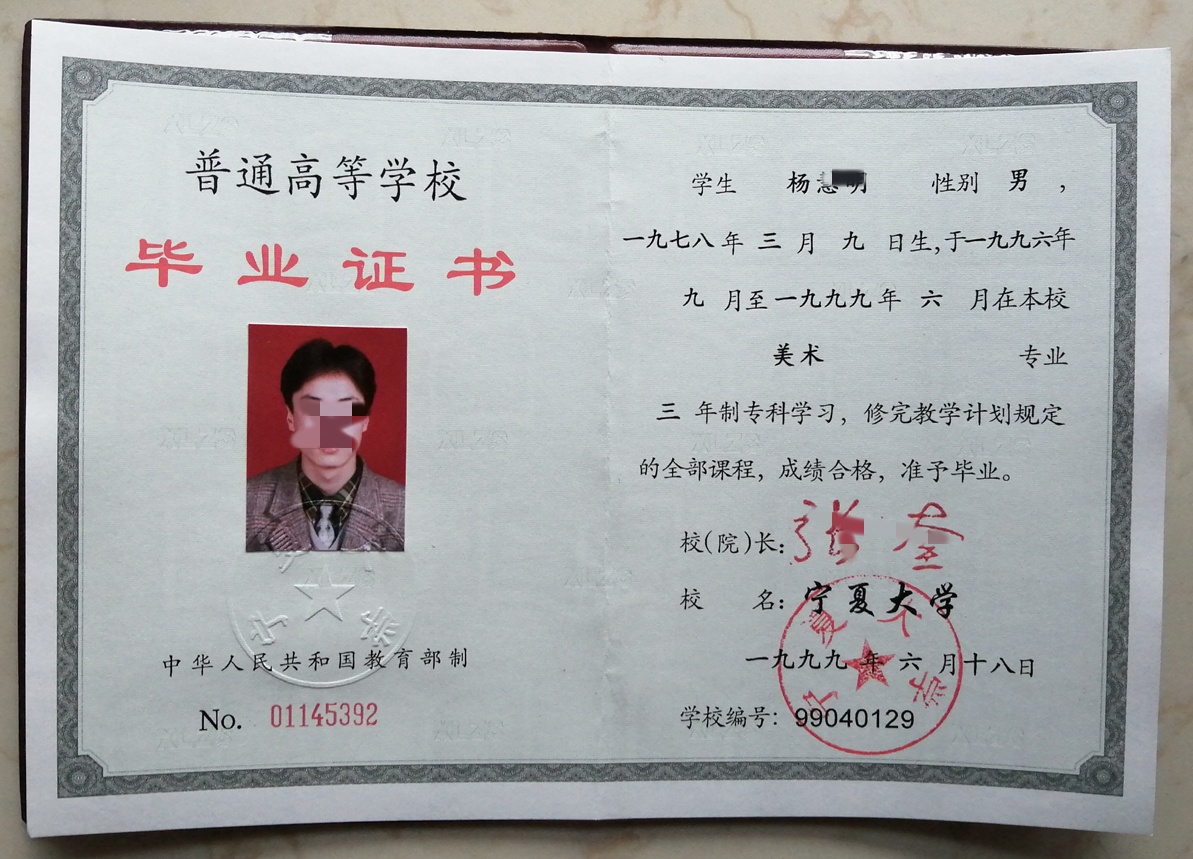 普通高等学校
毕业证书
中华人民共和国教育部制
No. 01145392
学生 杨 性别 男，
一九七八年三月九日生,于一九九六年
九月至一九九九年六月在本校
美术 专业
三年制专科学习，修完教学计划规定
的全部课程，成绩合格，准予毕业。
校(院)长：张
校名：宁夏大学
宁夏大学
一九九九年六月十八日
学校编号：99040129